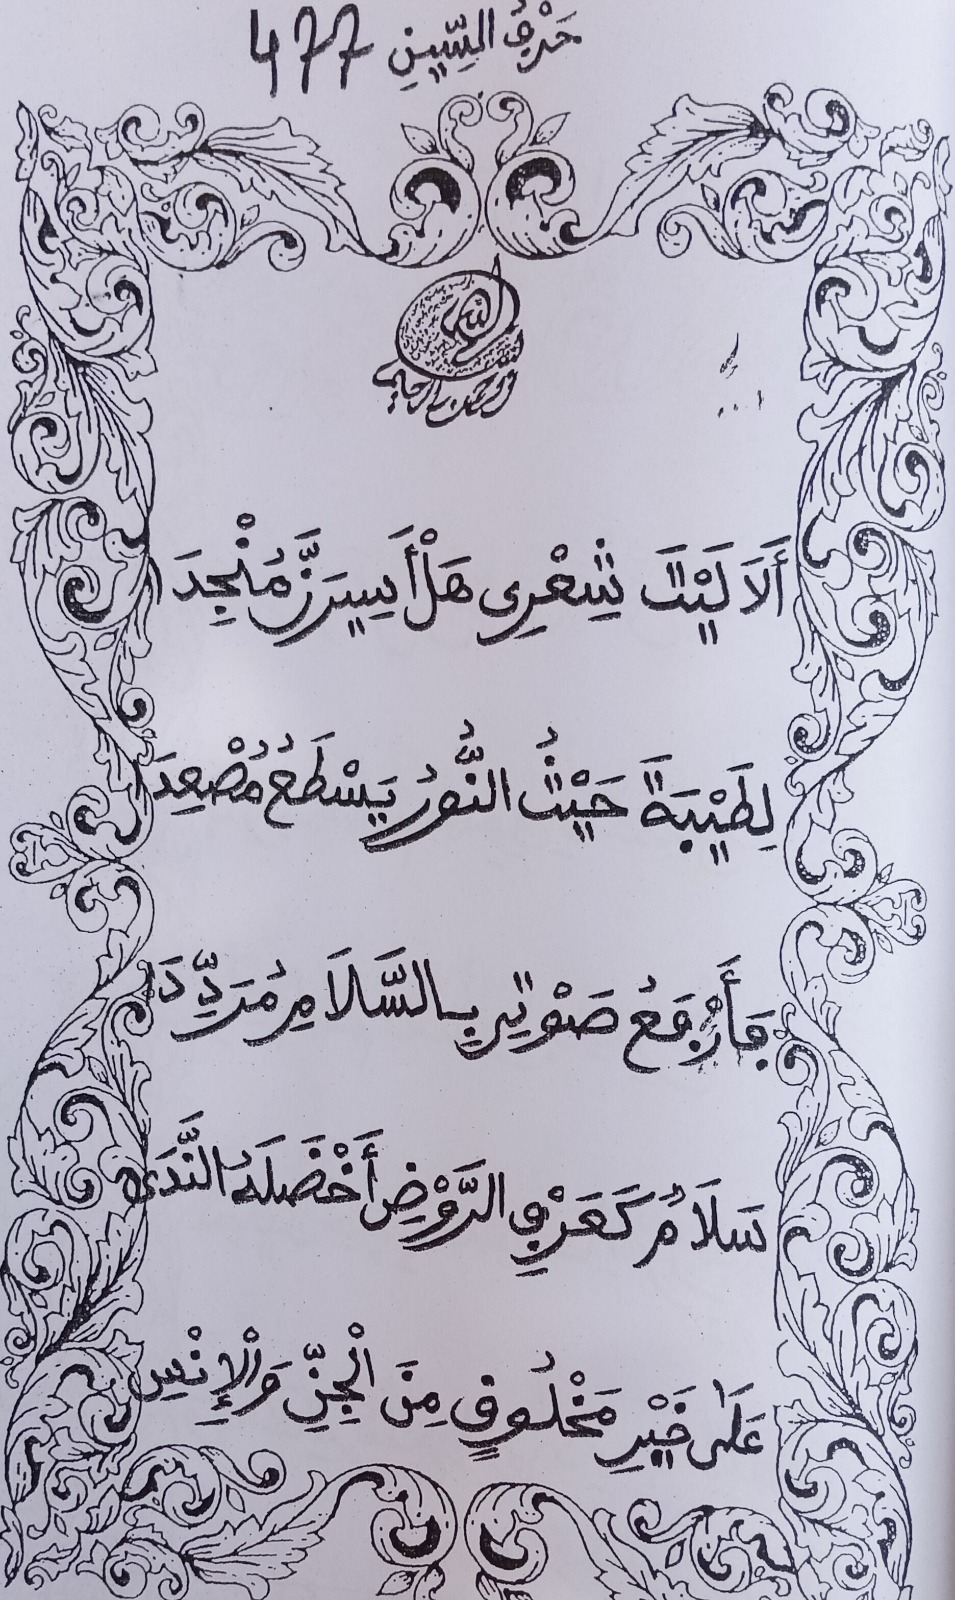 حَرْفُ السِّينِ 477
أَلَا لَيْتَ شِعْرِي هَلْ أَسِيرَنَّ مُنْجِدَا
لِطَيْبَةَ حَيْثُ النُّورُ يَسْطَعُ مُصْعِدَا
فَأَرْفَعُ صَوْتِي بِالسَّلَامِ مُرَدِّدَا
سَلَامٌ كَعَرْفِ الرَّوْضِ أَخْضَلَهُ النَّدَى
عَلَى خَيْرِ مَخْلُوقٍ مِنَ الْجِنِّ وَالْإِنْسِ